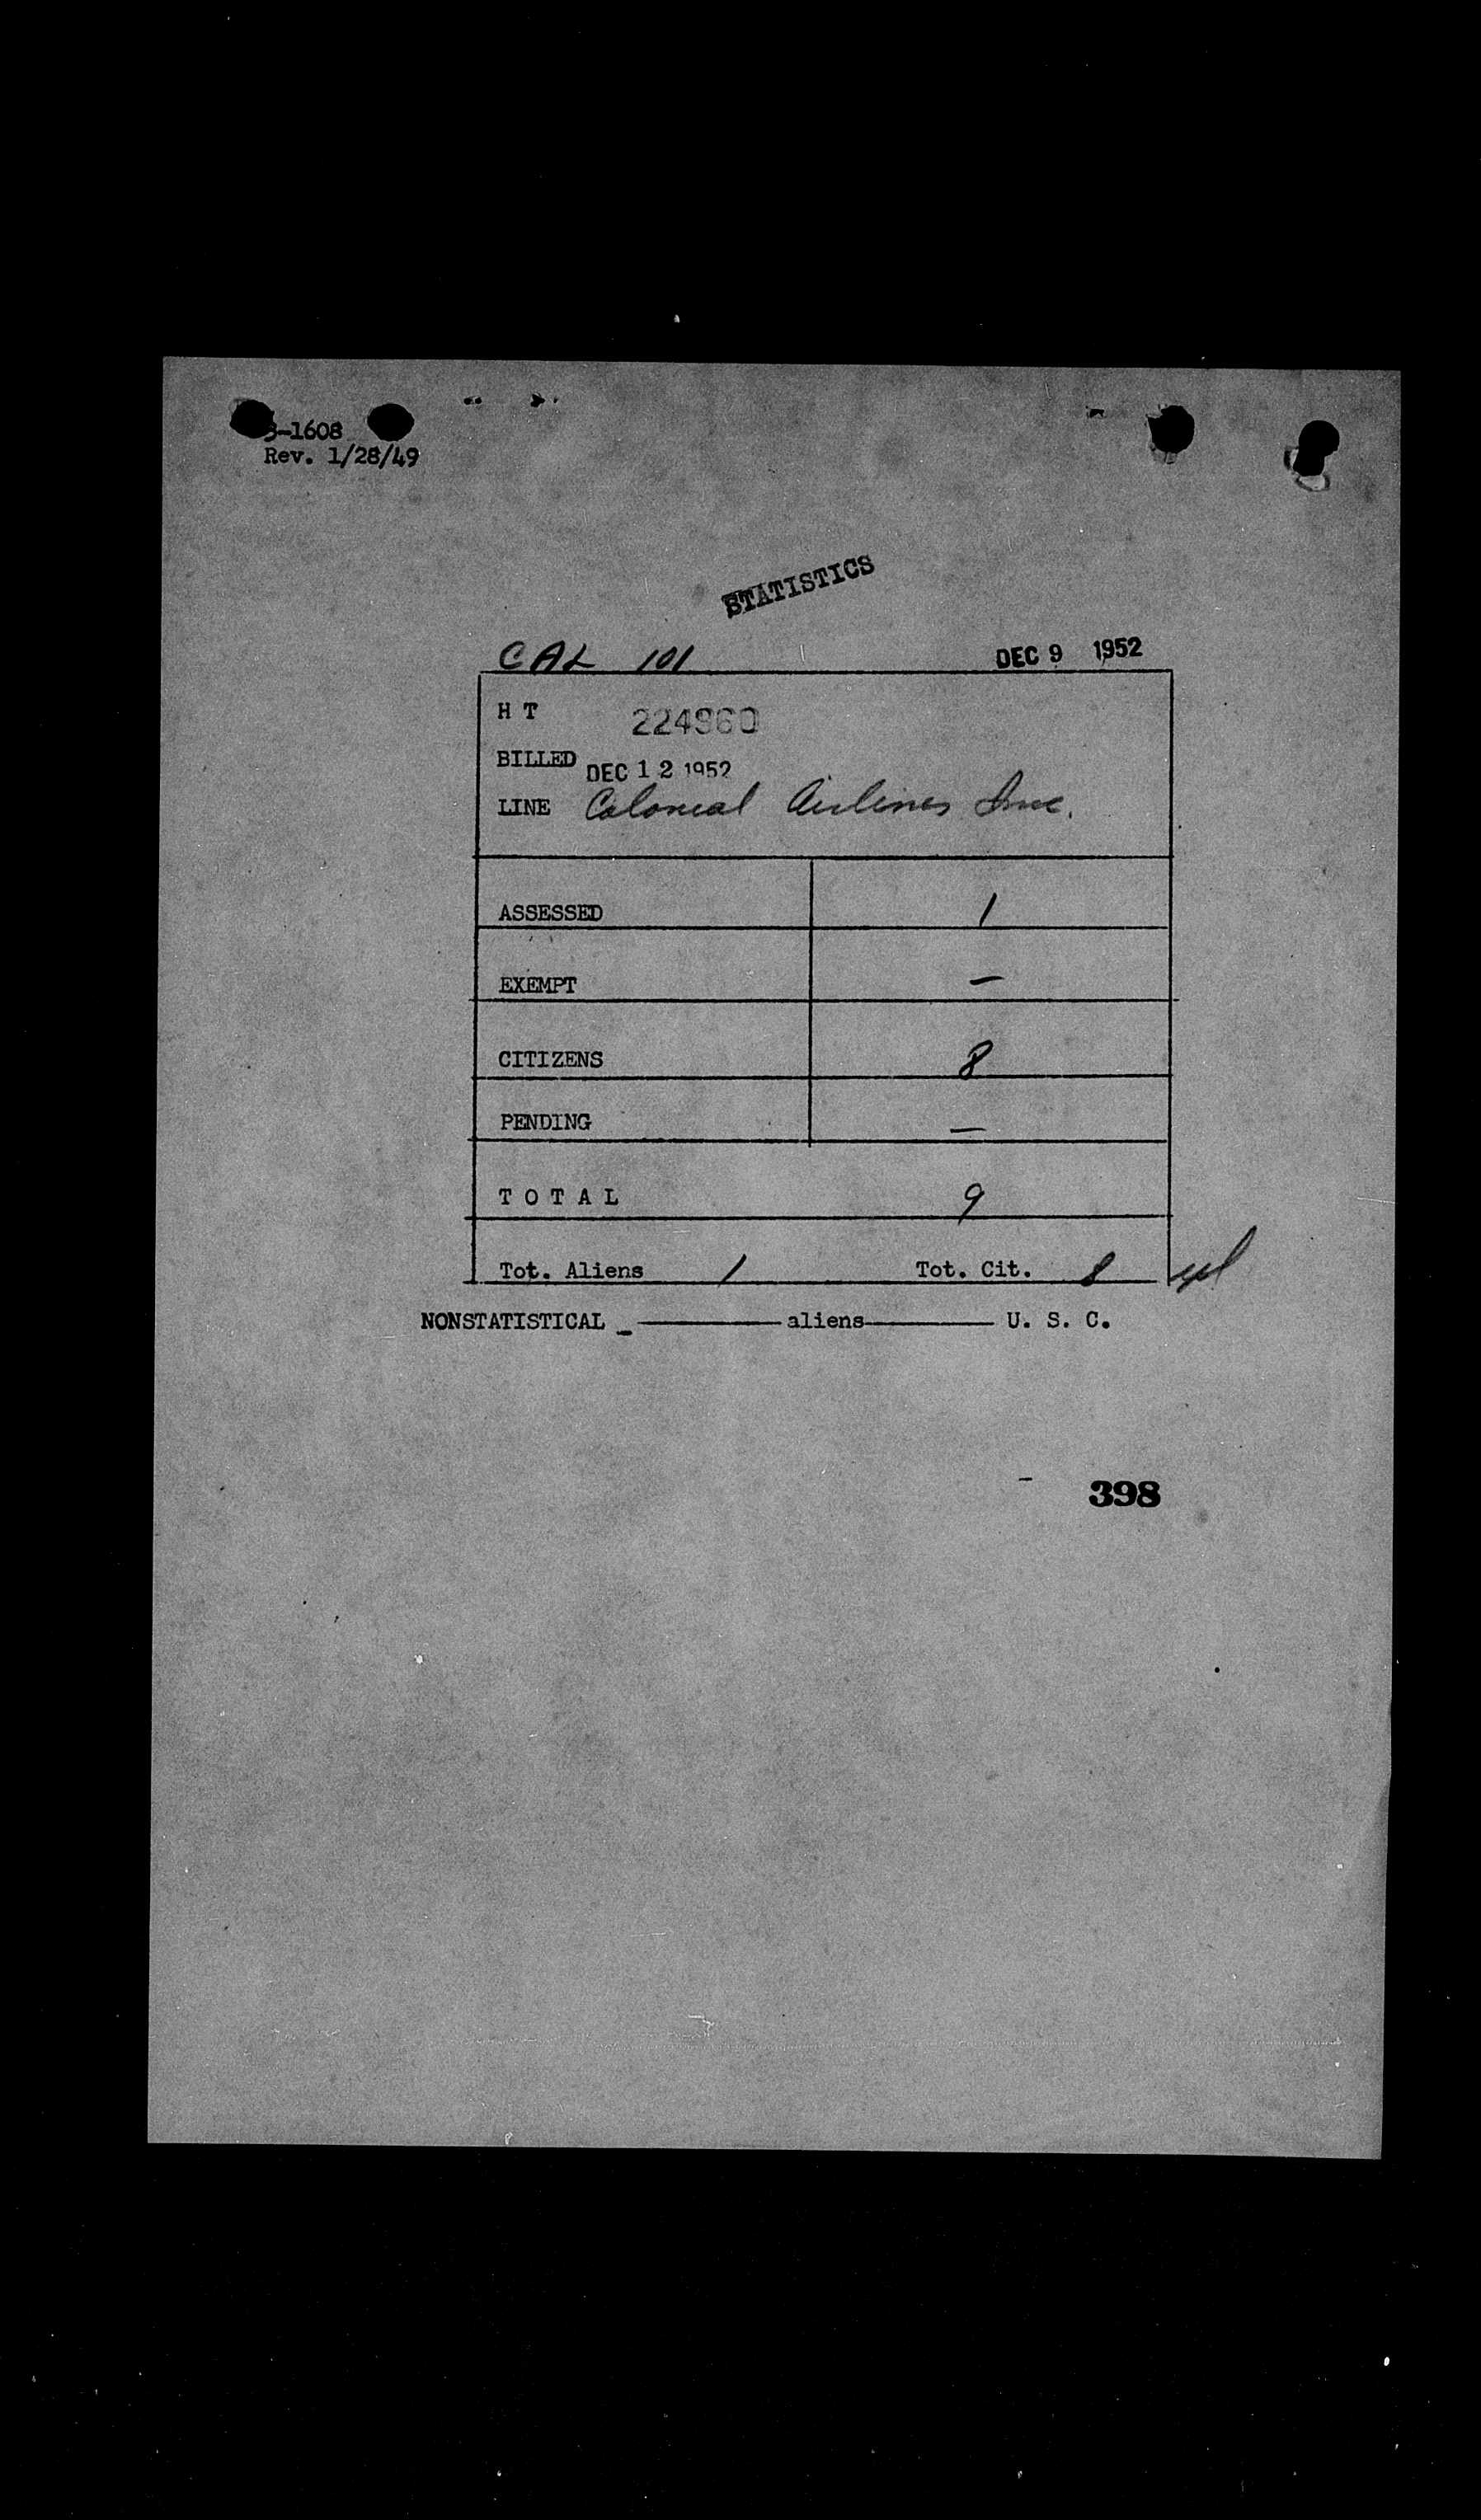 -1608
Rev. 1/28/49
STATISTICS
CAL 101 DEC 9 1952
H T 224960
BILLED DEC 12 1952
LINE Colonial Airlines Inc.
ASSESSED 1
EXEMPT —
CITIZENS 8
PENDING —
T O T A L 9
Tot. Aliens 1 Tot. Cit. 8
NONSTATISTICAL _ ——— aliens ——— U. S. C.
398